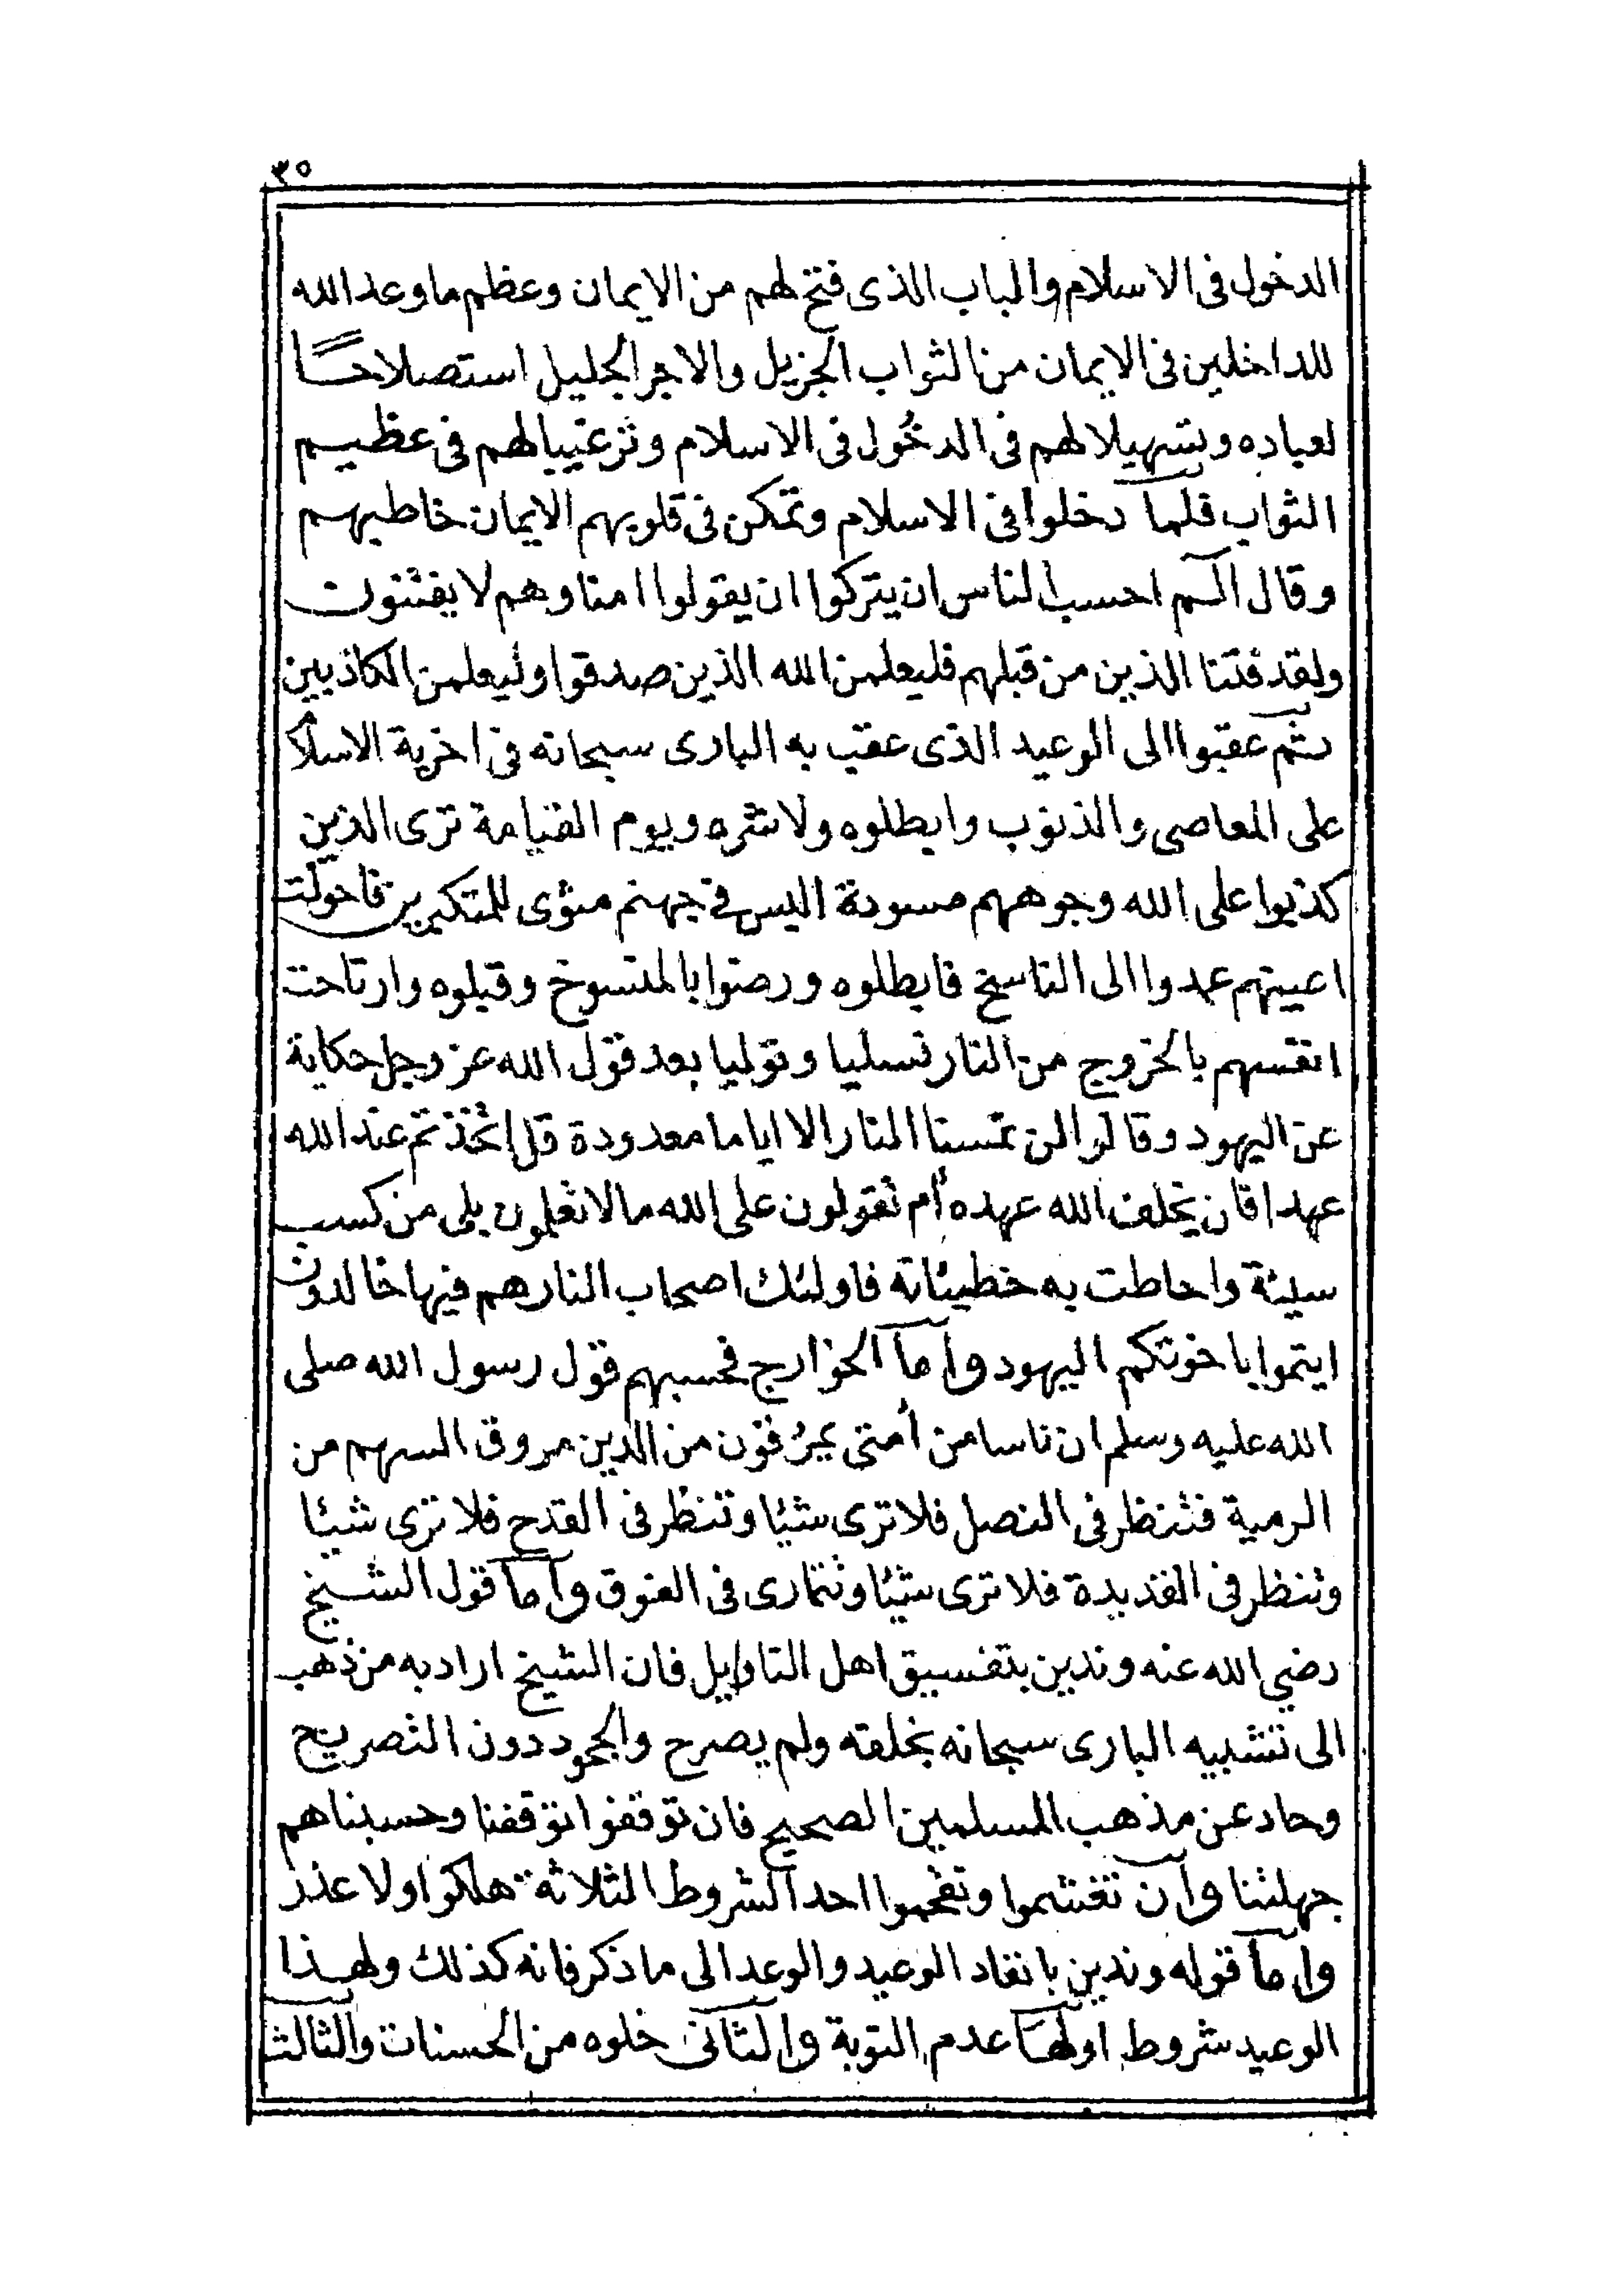 ٣٥
الدخول فى الاسلام والباب الذى فتح لهم من الايمان وعظم ما وعد الله
للداخلين فى الايمان من الثواب الجزيل والاجر الجليل استصلاحًا
لعباده وتسهيلا لهم فى الدخُول فى الاسلام وترغيبا لهم فى عظيم
الثواب فلما دخلوا فى الاسلام وتمكن فى قلوبهم الايمان خاطبهم
وقال الٓم احسب الناس ان يتركوا ان يقولوا امنا وهم لا يفتنون
ولقد فتنا الذين من قبلهم فليعلمن الله الذين صدقوا وليعلمن الكاذبين
ثم عقبوا الى الوعيد الذى عقب به البارى سبحانه فى اخرية الاسلام
على المعاصى والذنوب وابطلوه ولاشره ويوم القيامة ترى الذين
كذبوا على الله وجوههم مسودة اليس فى جهنم مثوى للمتكبرين فاحولت
اعينهم عمدوا الى الناسخ فابطلوه ورضوا بالمنسوخ وقبلوه وارتاحت
انفسهم بالخروج من النار تسليا وتوليا بعد قول الله عز وجل حكاية
عن اليهود وقالوا لن تمسنا النار الا اياما معدودة قل اتخذتم عند الله
عهدا فان يخلف الله عهده أم تقولون على الله ما لا تعلمون بلى من كسب
سيئة واحاطت به خطيئاته فاولئك اصحاب النار هم فيها خالدون
ايتموا باخوتكم اليهود واما الخوارج فحسبهم قول رسول الله صلى
الله عليه وسلم ان ناسا من أمتى يمرُقون من الدين مروق السهم من
الرمية فتنظر فى النصل فلا ترى شيئا وتنظر فى القدح فلا ترى شيئا
وتنظر فى القديدة فلا ترى شيئا وتتمارى فى الفوق واما قول الشيخ
رضي الله عنه وندين بتفسيق اهل التاويل فان الشيخ اراد به من ذهب
الى تشبيه البارى سبحانه بخلقه ولم يصرح والجحود دون التصريح
وحاد عن مذهب المسلمين الصحيح فان توقفوا توقفنا وحسبناهم
جهلتنا وان تغشموا وتقحموا احد الشروط الثلاثة هلكوا ولا عذر
واما قوله وندين بانفاد الوعيد والوعد الى ما ذكر فانه كذلك ولهذا
الوعيد شروط اولها عدم التوبة والثانى خلوه من الحسنات والثالث